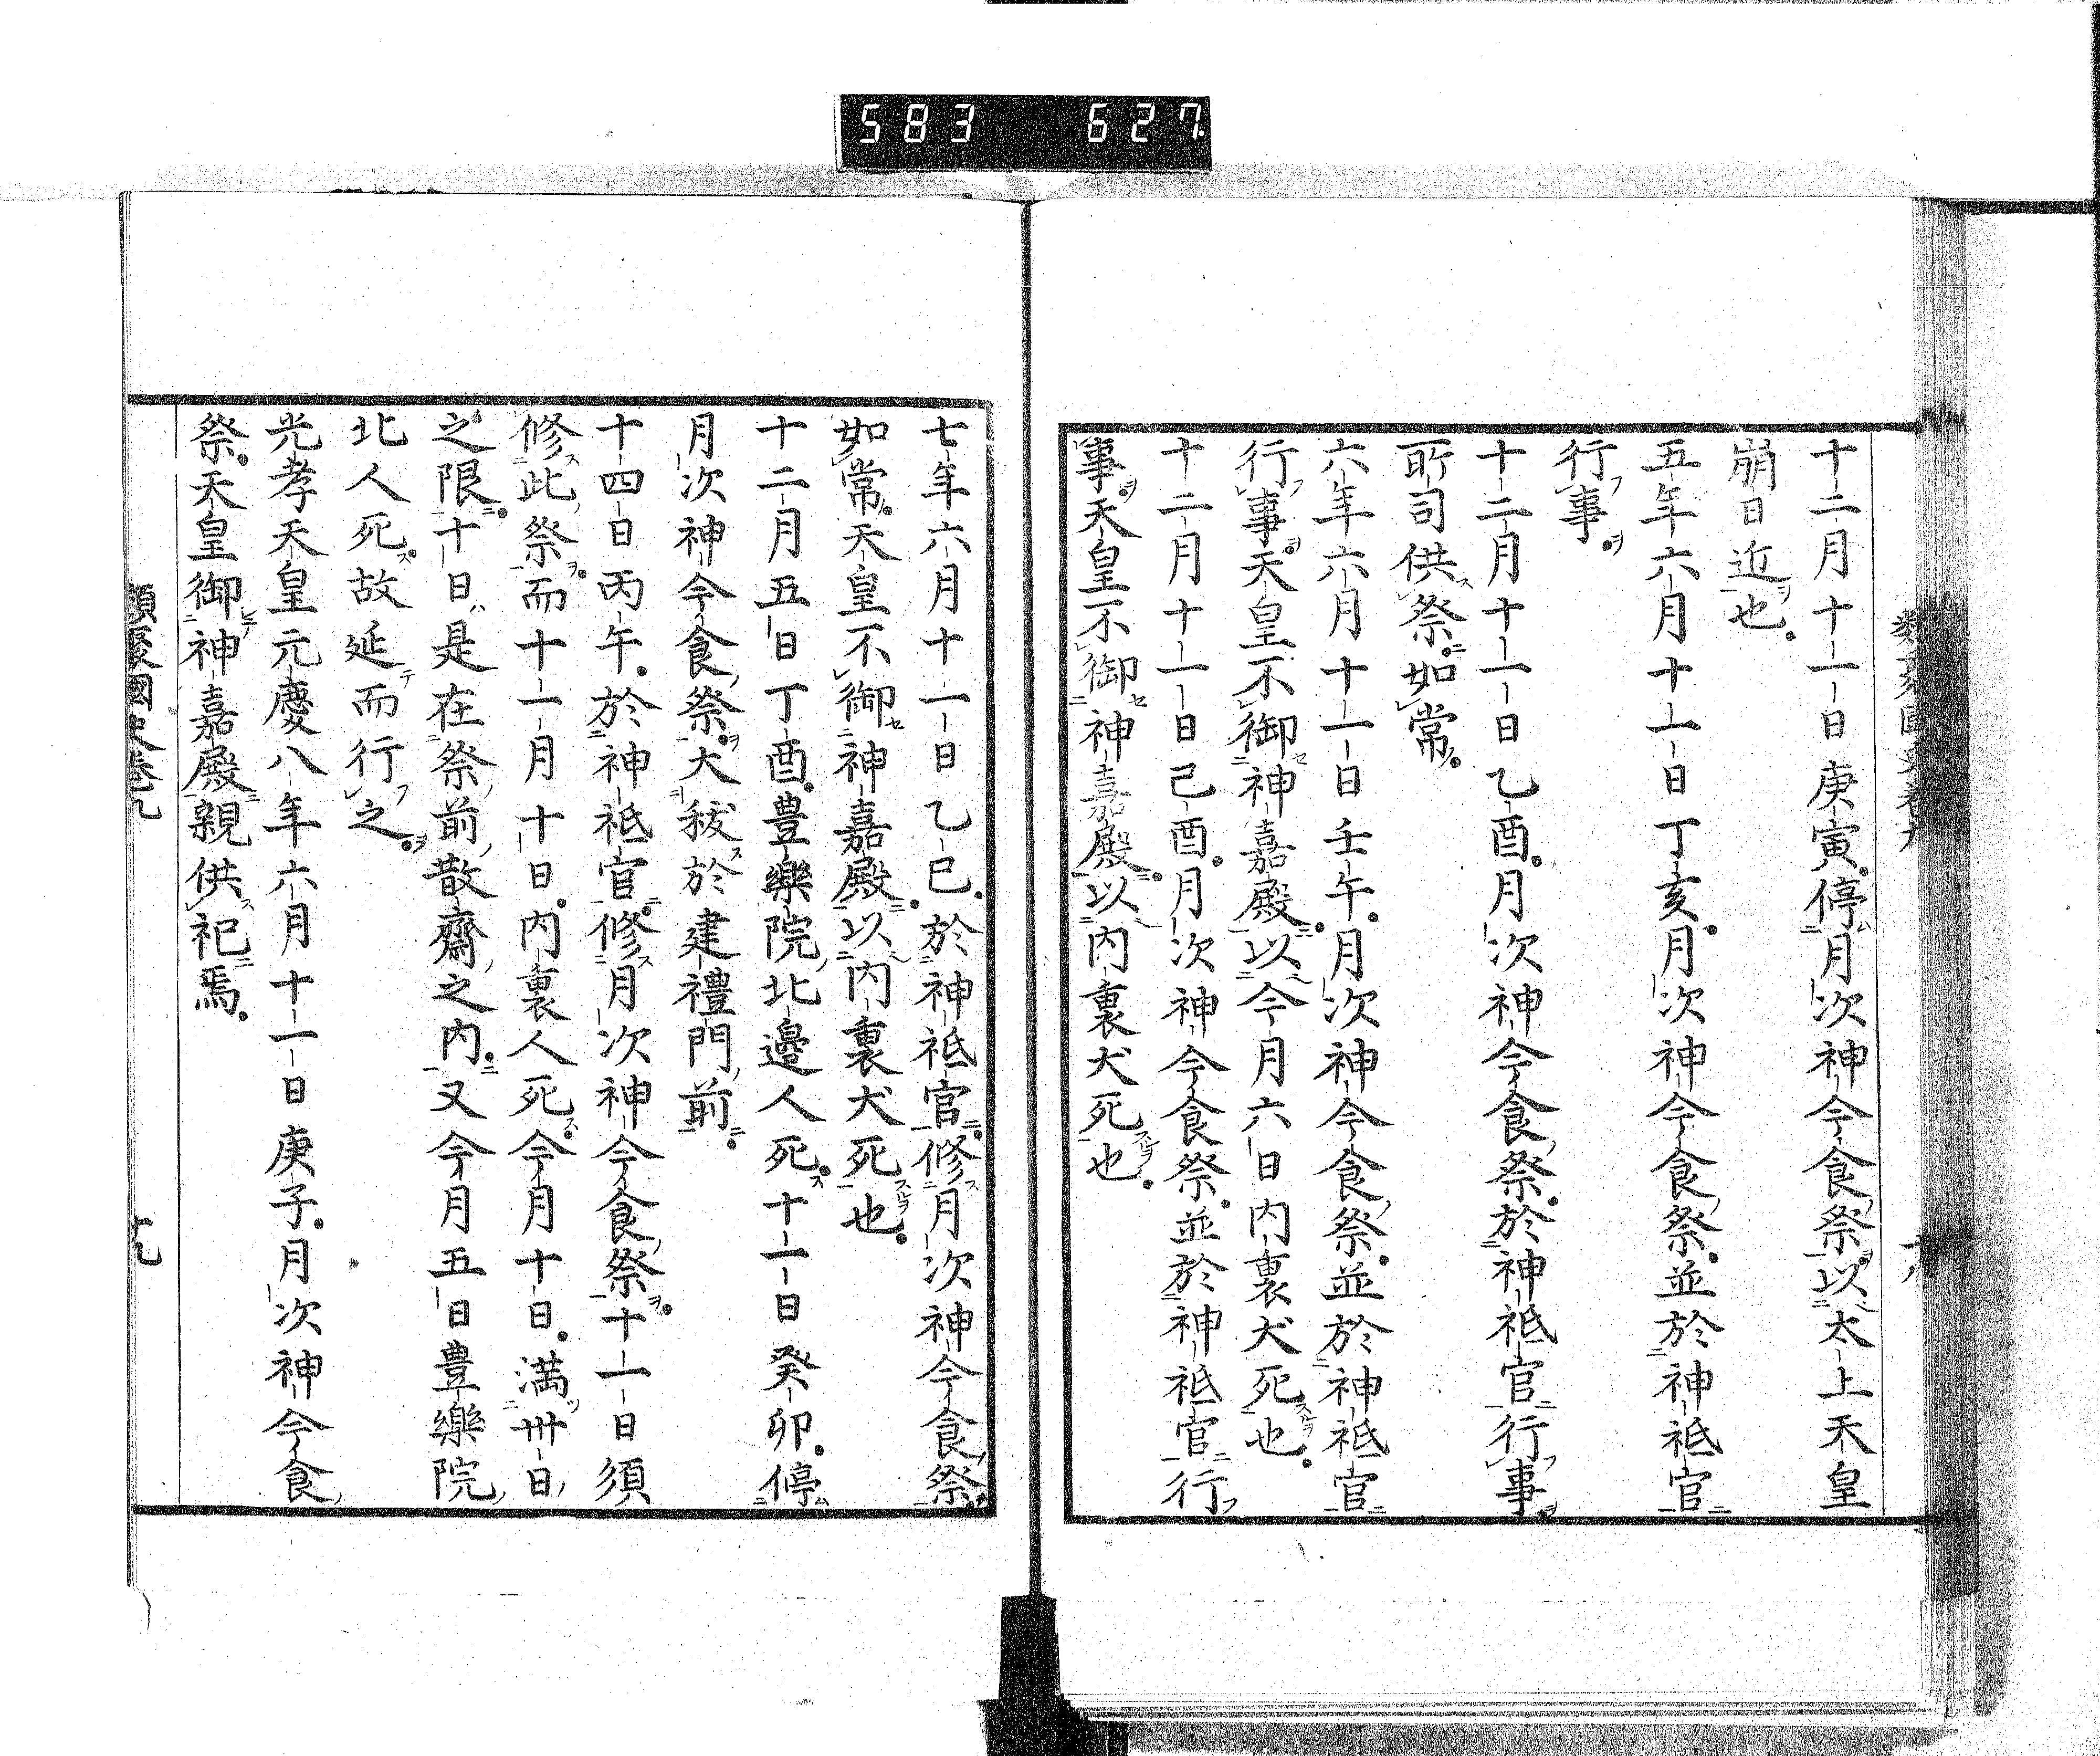 583 627
十二月十一日庚寅停月次神今食祭以太上天皇
崩日近也
五年六月十一日丁亥月次神今食祭並於神祇官
行事
十二月十一日乙酉月次神今食祭於神祇官行事
所司供祭如常
六年六月十一日壬午月次神今食祭並於神祇官
行事天皇不御神嘉殿以今月六日内裏犬死也
十二月十一日己酉月次神今食祭並於神祇官行
事天皇不御神嘉殿以内裏犬死也
七年六月十一日乙巳於神祇官修月次神今食祭
如常天皇不御神嘉殿以内裏犬死也
十二月五日丁酉豊樂院北邉人死十一日癸卯停
月次神今食祭大秡於建禮門前
十四日丙午於神祇官修月次神今食祭十一日須
修此祭而十一月十日内裏人死今月十日満卅日
之限十日是在祭前散齋之内又今月五日豊樂院
北人死故延而行之
光孝天皇元慶八年六月十一日庚子月次神今食
祭天皇御神嘉殿親供祀焉
類聚國史卷九